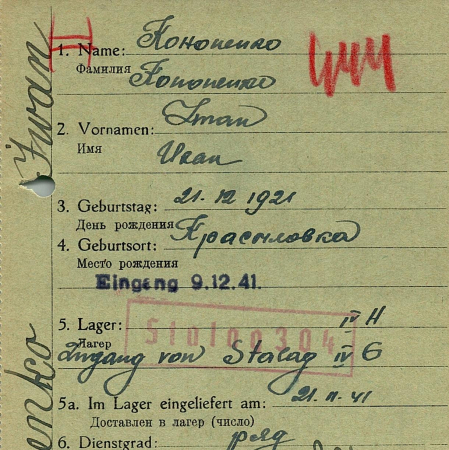 II
1. Name: Кононенко
Фамилия Кононенко
2. Vornamen: Iwan
Имя Иван
3. Geburtstag: 21.12.1921
День рождения
4. Geburtsort: Красыловка
Место рождения
Eingang 9.12.41.
5. Lager: IV H
Лагер Stalag 304
Zugang von Stalag IV G
5a. Im Lager eingeliefert am: 21.11.41
Доставлен в лагер (число)
6. Dienstgrad: ряд
Iwan
enko